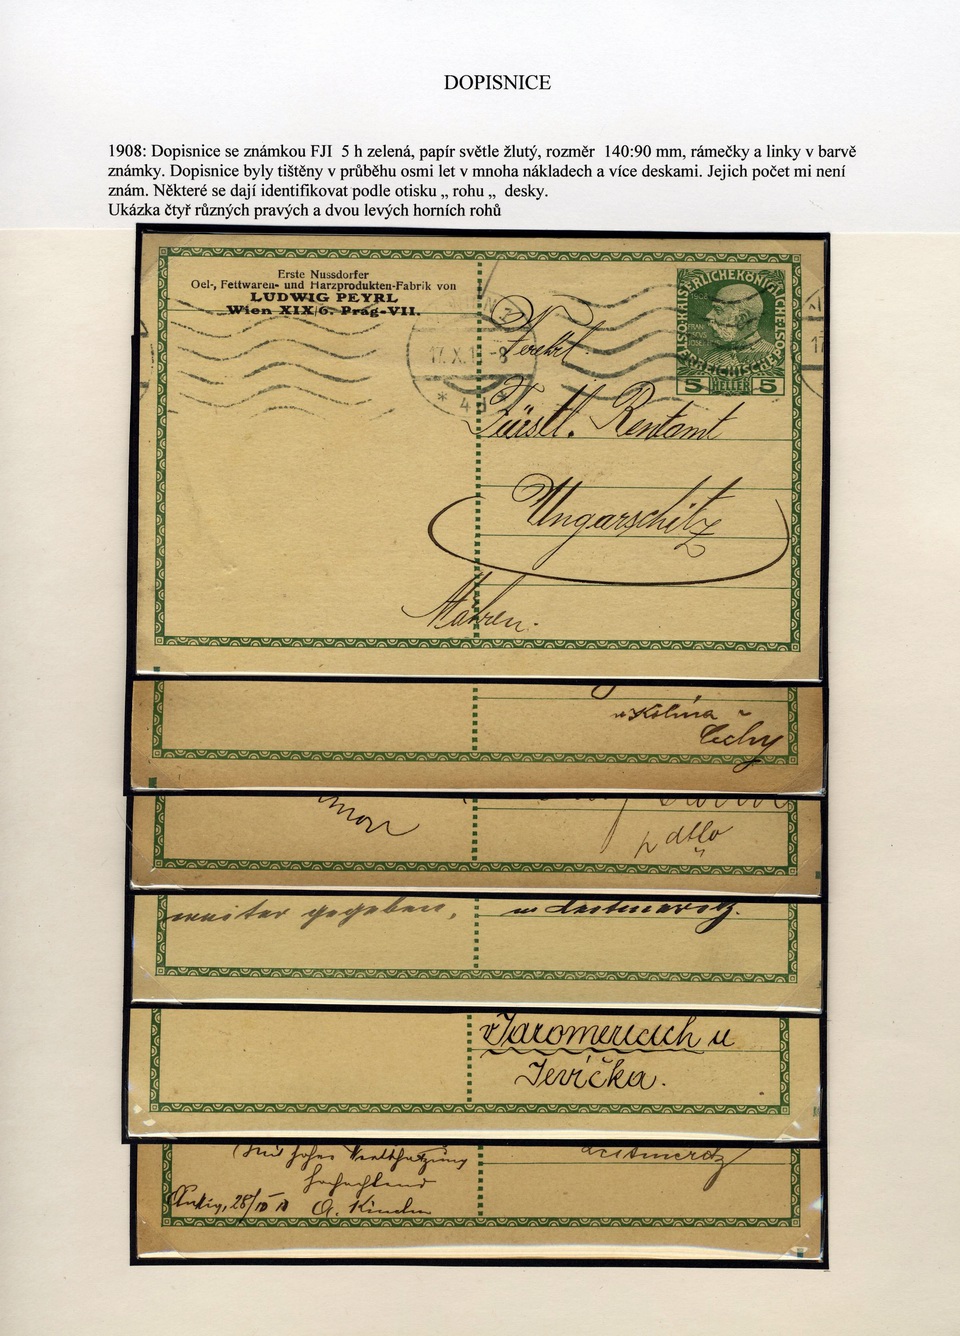 DOPISNICE
1908: Dopisnice se známkou FJI 5 h zelená, papír světle žlutý, rozměr 140:90 mm, rámečky a linky v barvě
známky. Dopisnice byly tištěny v průběhu osmi let v mnoha nákladech a více deskami. Jejich počet mi není
znám. Některé se dají identifikovat podle otisku „ rohu „ desky.
Ukázka čtyř různých pravých a dvou levých horních rohů
Erste Nussdorfer
Oel-, Fettwaren- und Harzprodukten-Fabrik von
LUDWIG PEYRL
Wien XIX/6. Prag-VII.
KAISERLICHE KÖNIGLICHE
ÖSTERREICHISCHE POST
1908
5 HELLER 5
17. X. 1 -8
* 4 *
Fürstl. Rentamt
Ungarschitz
Mähren.
Kolína
Čechy
weiter gegeben,
Leitmeritz.
Jaromericich u
Jevíčka.
Leitmeritz